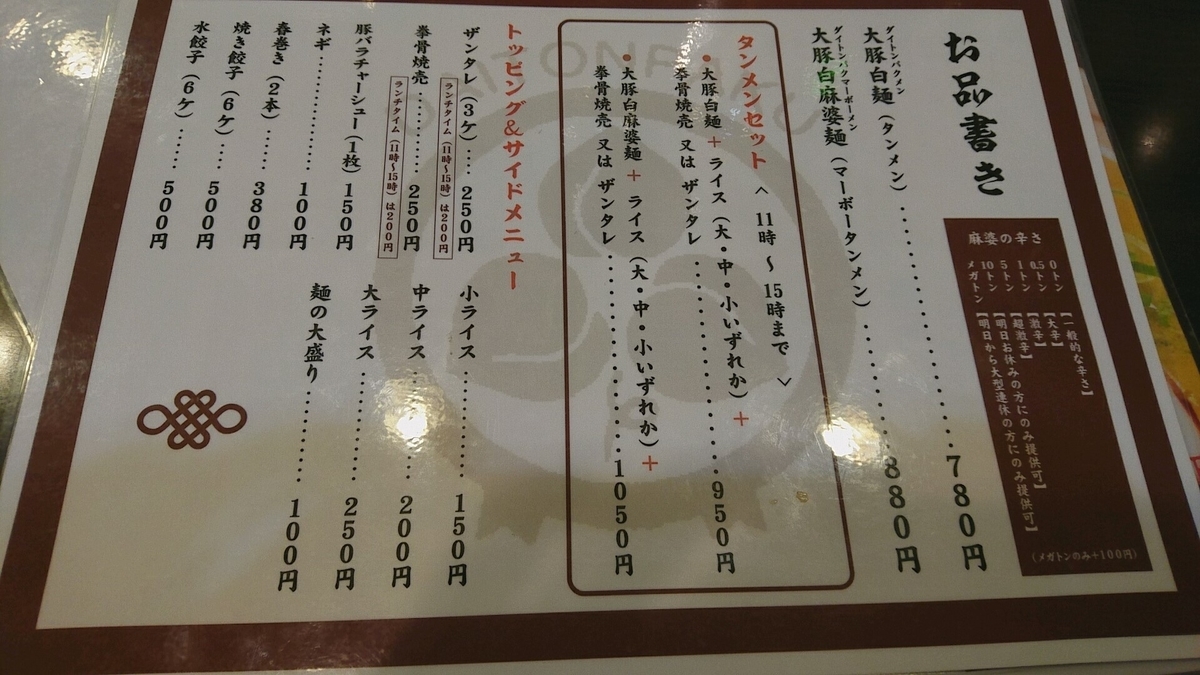 お品書き
麻婆の辛さ
0トン【一般的な辛さ】
0.5トン【大辛】
1トン【激辛】
5トン【超激辛】
10トン【明日お休みの方にのみ提供可】
メガトン【明日から大型連休の方にのみ提供可】
(メガトンのみ+100円)
ダイトンパクメン
大豚白麺(タンメン)……780円
ダイトンパクマーボーメン
大豚白麻婆麺(マーボータンメン)……880円
タンメンセット <11時〜15時まで>
・大豚白麺+ライス(大・中・小いずれか)+
拳骨焼売 又は ザンタレ……950円
・大豚白麻婆麺+ライス(大・中・小いずれか)+
拳骨焼売 又は ザンタレ……1050円
トッピング&サイドメニュー
ザンタレ(3ケ)……250円
ランチタイム(11時〜15時)は200円
拳骨焼売……250円
ランチタイム(11時〜15時)は200円
豚バラチャーシュー(1枚)150円
ネギ……100円
春巻き(2本)……380円
焼き餃子(6ケ)……500円
水餃子(6ケ)……500円
小ライス……150円
中ライス……200円
大ライス……250円
麺の大盛り……100円